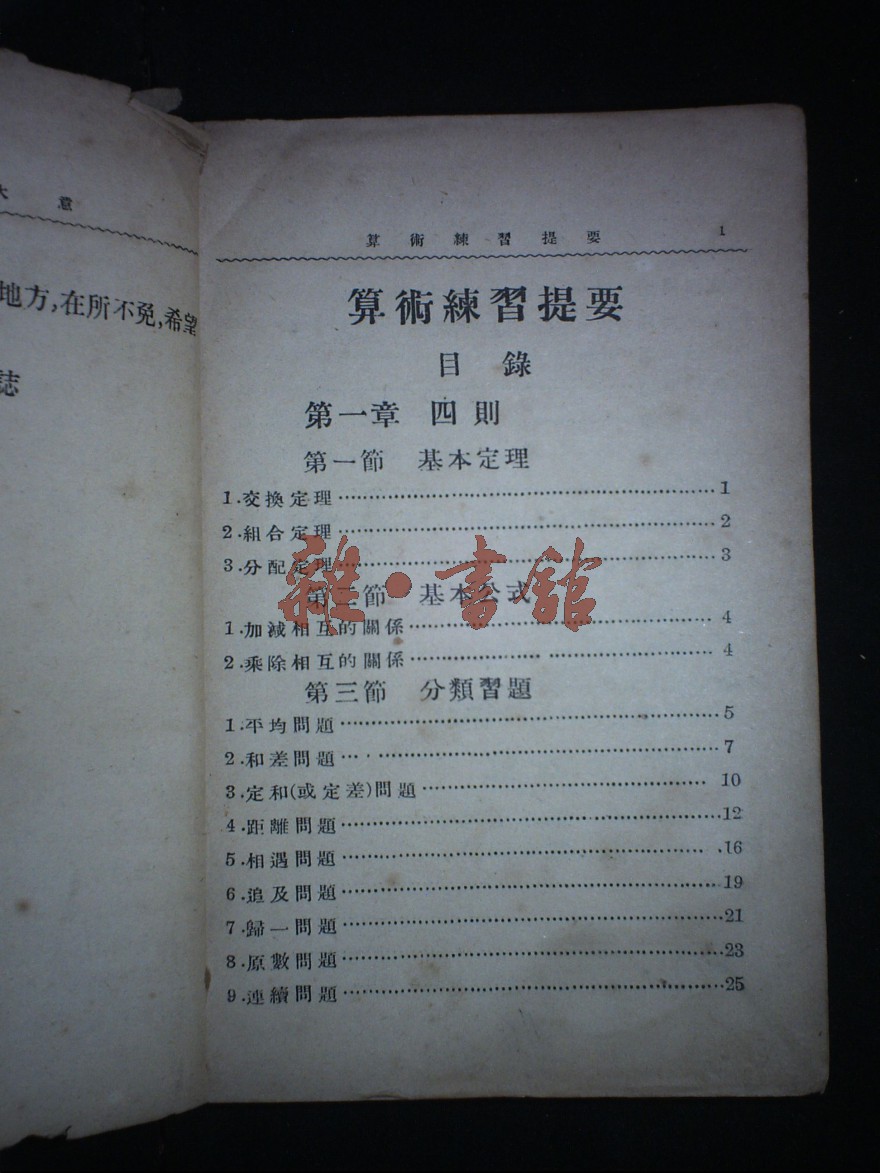 大意
地方,在所不免,希望
誌
算術練習提要 1
算術練習提要
目錄
第一章 四則
第一節 基本定理
1.交換定理 1
2.組合定理 2
3.分配定理 3
第二節 基本公式
1.加減相互的關係 4
2.乘除相互的關係 4
第三節 分類習題
1.平均問題 5
2.和差問題 7
3.定和(或定差)問題 10
4.距離問題 12
5.相遇問題 16
6.追及問題 19
7.歸一問題 21
8.原數問題 23
9.連續問題 25
雜·書館